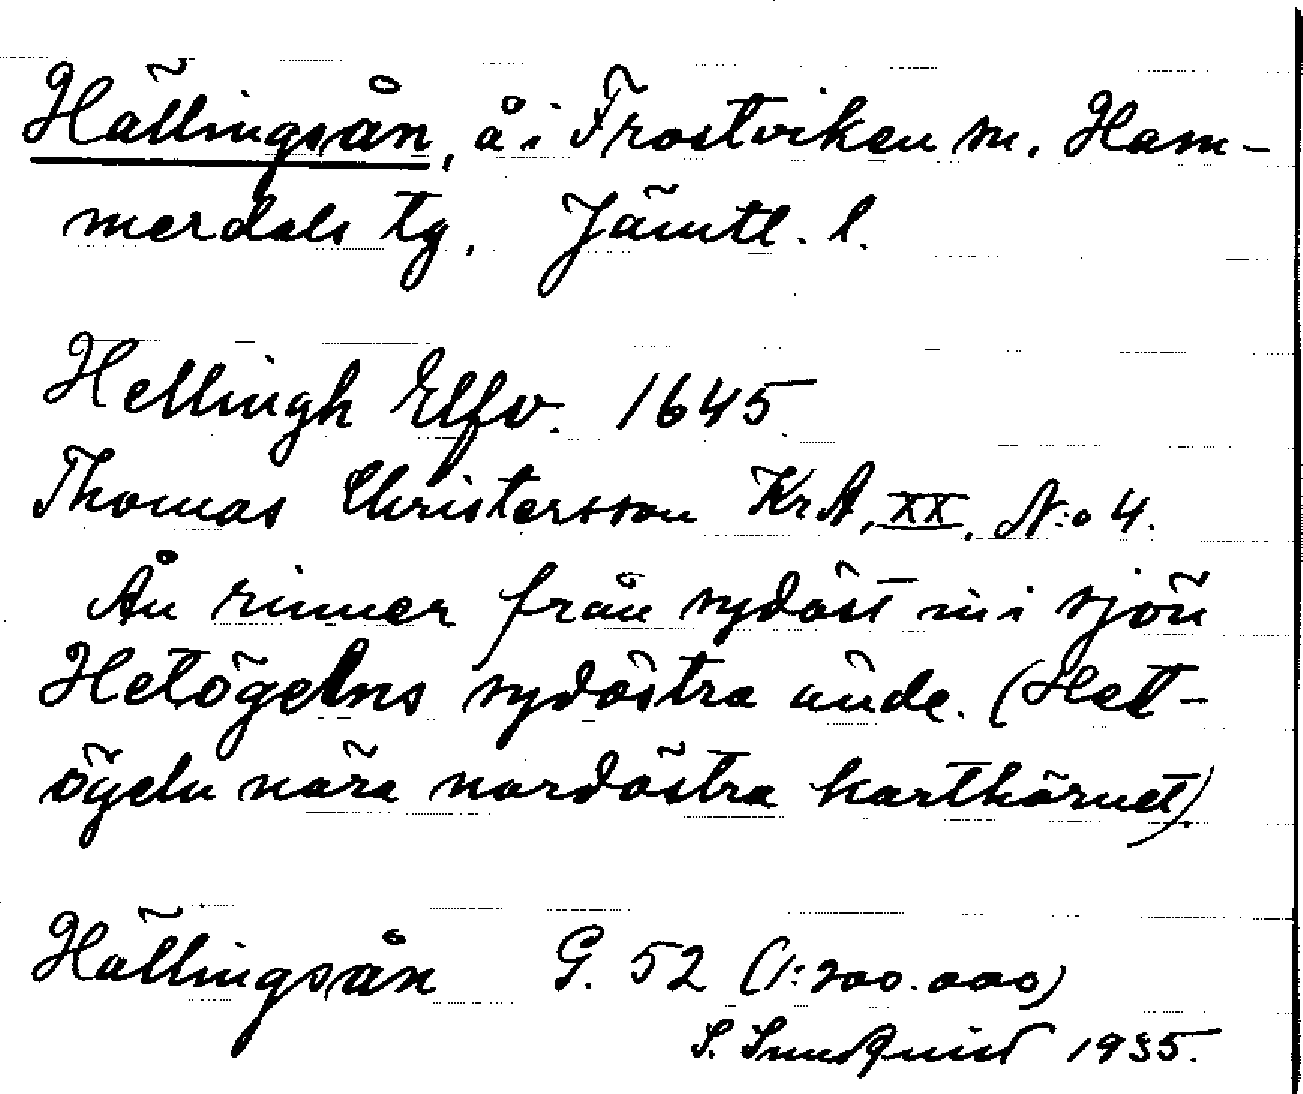 Hällingsån, å i Frostviken sn. Ham-
merdals tg. Jämtl. l.
Hellingh Elfv. 1645
Thomas Christersson KrA, XX, N:o 4.
Ån rinner från sydöst in i sjön
Hetögelns sydöstra ände. (Het-
ögeln nära nordöstra karthörnet).
Hällingsån G. 52 (1:200.000)
S. Sundquist 1935.